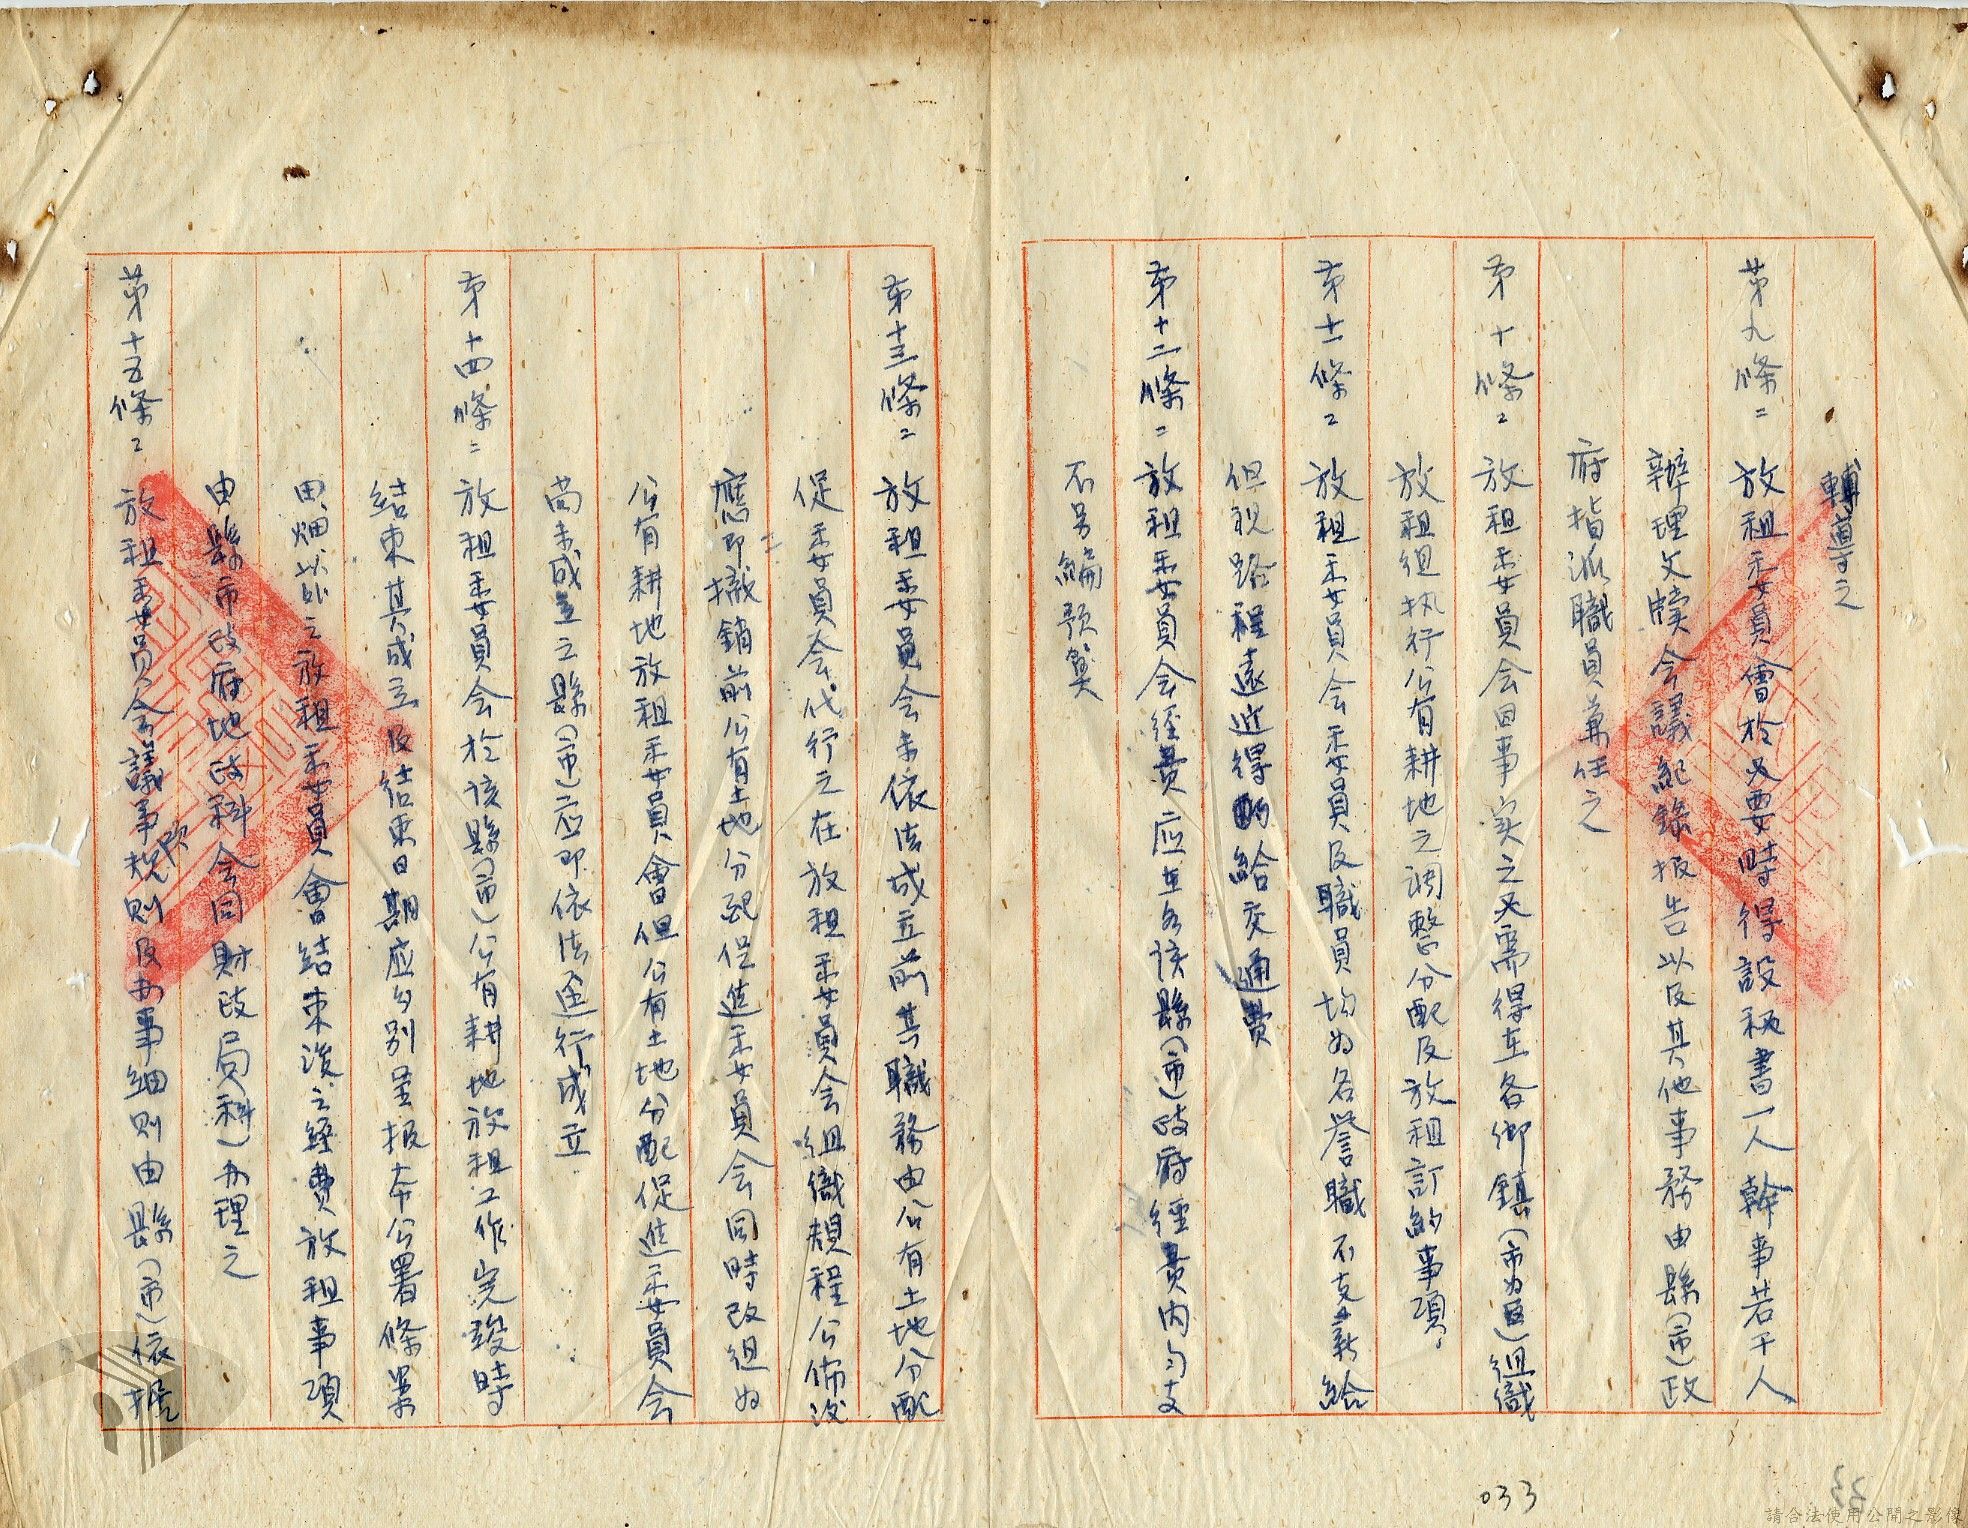 轉導之
第九條＝放租委員會於必要時得設秘書一人幹事若干人
辦理文牘会議紀錄报告以及其他事務由縣(市)政
府指派職員兼任之
第十條＝放租委員会因事实之必需得在各鄉鎮(市为區)組織
放租组执行公有耕地之调整分配及放租訂約事項
第十一條＝放租委員会委員及職員均为名譽職不支薪給
但視路程遠近得酌給交通費
第十二條＝放租委員会经費应在各该縣(市)政府經費内勻支
不另編預算
第十三條＝放租委員会未依法成立前其職務由公有土地分配
促委員会代行之在放租委員会組織規程公佈後
應即撤銷前公有土地分配促進委員会同時改组为
公有耕地放租委員會但公有土地分配促進委員会
尚未成立之縣(市)应即依法逕行成立
第十四條＝放租委員会於该縣(市)公有耕地放租工作完竣時
結束其成立及结束日期应分别呈报本公署條第
田畑以外之放租委員會结束後之經費放租事項
由縣市政府地政科会同財政局(科)办理之
第十五條＝放租委員会議事規則及办事细則由縣(市)依据
033
33
請合法使用公開之影像